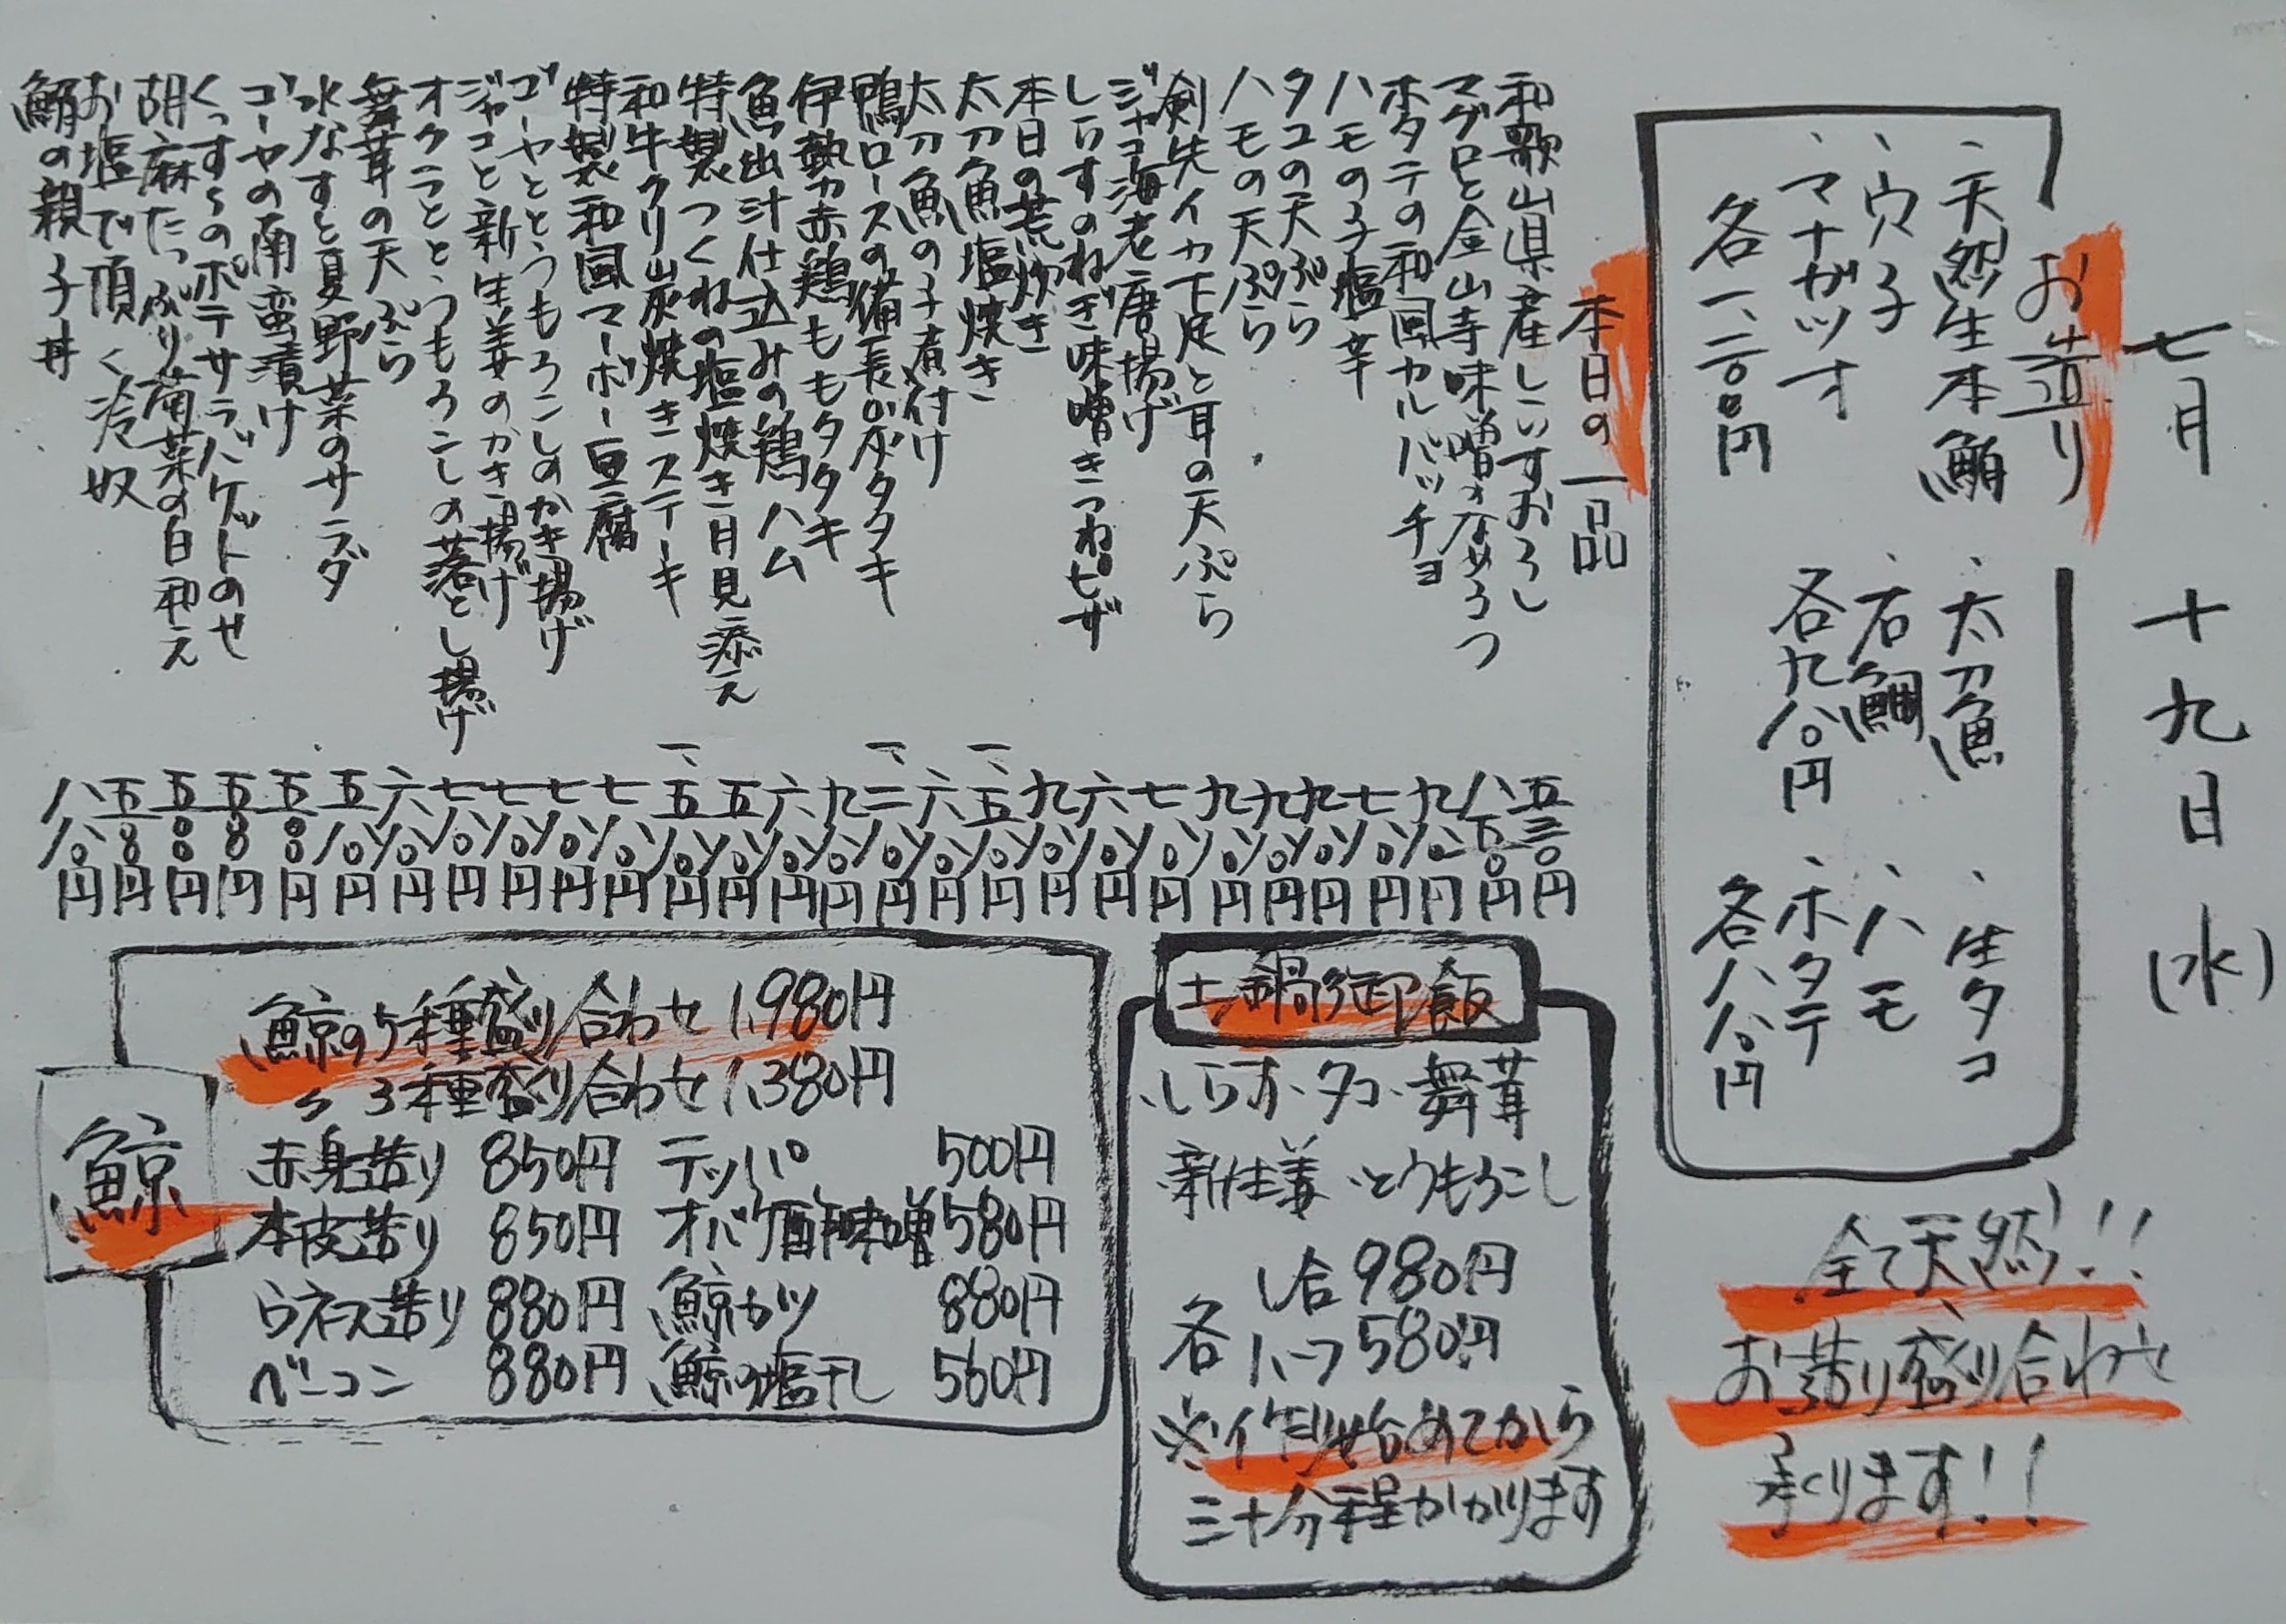 七月 十九日 (水)
お造り
、天然生本鮪
、穴子
、マナガツオ
各一、二八〇円
、太刀魚
、石鯛
各九八〇円
、生タコ
、ハモ
、ホタテ
各八八〇円
全て天然!!
お造り盛り合わせ
承ります!!
本日の一品
和歌山県産しらすおろし 五三〇円
マグロと金山寺味噌のなめろう 八五〇円
ホタテの和風カルパッチョ 九八〇円
ハモの子塩辛 七八〇円
タコの天ぷら 九八〇円
ハモの天ぷら 九八〇円
剣先イカ下足と耳の天ぷら 九八〇円
ジャコ海老唐揚げ 七八〇円
しらすのねぎ味噌きつねピザ 六八〇円
本日の荒炊き 九八〇円
太刀魚塩焼き 一、五八〇円
太刀魚の子煮付け 六八〇円
鴨ロースの備長炭タタキ 一、二八〇円
伊勢赤鶏ももタタキ 九八〇円
魚出汁仕込みの鶏ハム 六八〇円
特製つくねの塩焼き月見添え 五八〇円
和牛クリ炭焼きステーキ 一、五八〇円
特製和風マーボー豆腐 七八〇円
ゴーヤととうもろこしのかき揚げ 七八〇円
ジャコと新生姜のかき揚げ 七八〇円
オクラととうもろこしの落とし揚げ 七八〇円
舞茸の天ぷら 六八〇円
水なすと夏野菜のサラダ 五八〇円
ゴーヤの南蛮漬け 五〇〇円
くっすぅのポテサラバゲットのせ 五八〇円
胡麻たっぷり菊菜の白和え 五〇〇円
お塩で頂く冷奴 五〇〇円
鮪の親子丼 八八〇円
土鍋御飯
・しらす・タコ・舞茸
・新生姜・とうもろこし
各 1合 980円
ハーフ 580円
※作り始めてから
三十分程かかります
鯨
鯨の5種盛り合わせ 1,980円
〃 3種盛り合わせ 1,380円
赤身造り 850円 テッパ 500円
本皮造り 850円 オバケ酢味噌 580円
ウネス造り 880円 鯨カツ 880円
ベーコン 880円 鯨の塩干し 560円